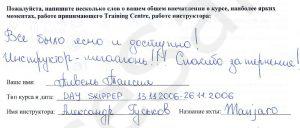 Пожалуйста, напишите несколько слов о вашем общем впечатлении о курсе, наиболее ярких
моментах, работе принимающего Training Centre, работе инструктора:
Все было ясно и доступно!
Инструктор - шпаголет!!! Спасибо за терпение!
Ваше имя: Пивень Таисия
Тип курса и дата: DAY SKIPPER 13.11.2006-26.11.2006
Имя инструктора: Александр Гуськов Название яхты: Manjaro